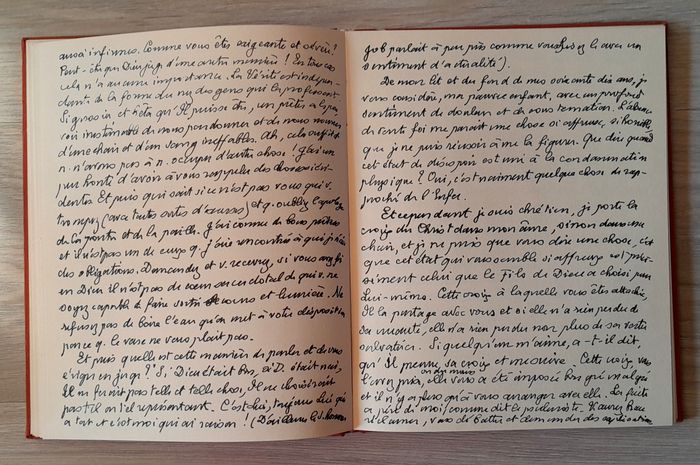 aussi infirmes. Comme vous êtes exigeante et sévère !
Peut-être que Dieu juge d'une autre manière ! En tout cas
cela n'a aucune importance. La Vérité est indépen-
dante de la forme du nez des gens qui la professent.
Si grossier et bêta qu'Il puisse être, un prêtre a le pou-
voir inestimable de nous pardonner et de nous nourrir
d'une chair et d'un sang ineffables. Ah, cela suffit et
n. n'avons pas à n. occuper d'autre chose ! J'ai un
peu honte d'avoir à vous rappeler des choses évi-
dentes. Et puis qui sait si ce n'est pas vous qui v.
trompez (avec toutes sortes d'excuses) et q. oubliez la parabole
de la poutre et de la paille. J'ai connu de bons prêtres
et il n'est pas un de ceux q. j'aie rencontrés à qui je n'aie
des obligations. Demandez et v. recevrez, si vous avez foi
en Dieu il n'est pas de cœur sacerdotal de qui v. ne
soyez capable de faire sortir secours et lumière. Ne
refusez pas de boire l'eau qu'on met à votre disposition
parce q. le vase ne vous plaît pas.
Et puis quelle est cette manière de parler et de vous
ériger en juge ? "Si Dieu était bon, si D. était neuf,
Il ne ferait pas telle et telle chose, Il ne choisirait
pas tel ou tel représentant. C'est Lui, toujours Lui qui
a tort et c'est moi qui ai raison ! (D'ailleurs le S. homme
Job parlait à peu près comme vous. Lisez-le avec un
sentiment d'actualité).
De mon lit et du fond de mes soixante dix ans, je
vous considère, ma pauvre enfant, avec un profond
sentiment de douleur et de consternation. L'absence
de toute foi me paraît une chose si affreuse, si horrible,
que je ne puis réussir à me la figurer. Que dire quand
cet état de désespoir est uni à la condamnation
physique ? Oui, c'est vraiment quelque chose de rap-
proché de l'Enfer.
Et cependant je suis chrétien, je porte la
croix du Christ dans mon âme, sinon dans ma
chair, et je ne puis que vous dire une chose, c'est
que cet état qui vous semble si affreux est préci-
sément celui que le Fils de Dieu a choisi pour
Lui-même. Cette croix à laquelle vous êtes attachée,
Il la partage avec vous et si elle n'a rien perdu de
sa cruauté, elle n'a rien perdu non plus de ses vertus
salvatrices. Si quelqu'un m'aime, a-t-il dit,
qu'Il prenne sa croix et me suive. Cette croix vous
l'avez prise, ou du moins elle vous a été imposée bon gré mal gré
et il n'y a plus qu'à vous arranger avec elle. La fuite
a péri de moi, comme dit le psalmiste. Vous aurez beau
réclamer, vous débattre et demander des explications